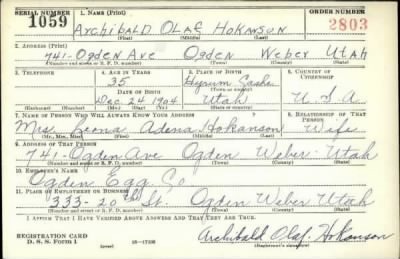 SERIAL NUMBER 1. NAME (Print) ORDER NUMBER
1059 ARCHIBALD OLAF HOKANSON 2803
(First) (Middle) (Last)
2. ADDRESS (Print)
741-Ogden Ave Ogden Weber Utah
(Number and street or R. F. D. number) (Town) (County) (State)
3. TELEPHONE 4. AGE IN YEARS 5. PLACE OF BIRTH 6. COUNTRY OF CITIZENSHIP
35 Hyrum
DATE OF BIRTH (Town or county)
Dec. 24 1904 Utah U.S.A
(Exchange) (Number) (Mo.) (Day) (Yr.) (State or country)
7. NAME OF PERSON WHO WILL ALWAYS KNOW YOUR ADDRESS 8. RELATIONSHIP OF THAT PERSON
Mrs. Leona Adena Hokanson Wife
(Mr., Mrs., Miss) (First) (Middle) (Last)
9. ADDRESS OF THAT PERSON
741-Ogden Ave Ogden Weber Utah
(Number and street or R. F. D. number) (Town) (County) (State)
10. EMPLOYER'S NAME
Ogden Egg Co
11. PLACE OF EMPLOYMENT OR BUSINESS
333-20th St. Ogden Weber Utah
(Number and street or R. F. D. number) (Town) (County) (State)
I AFFIRM THAT I HAVE VERIFIED ABOVE ANSWERS AND THAT THEY ARE TRUE.
REGISTRATION CARD
D. S. S. Form 1 16-17105 Archibald Olaf Hokanson
(Registrant's signature)